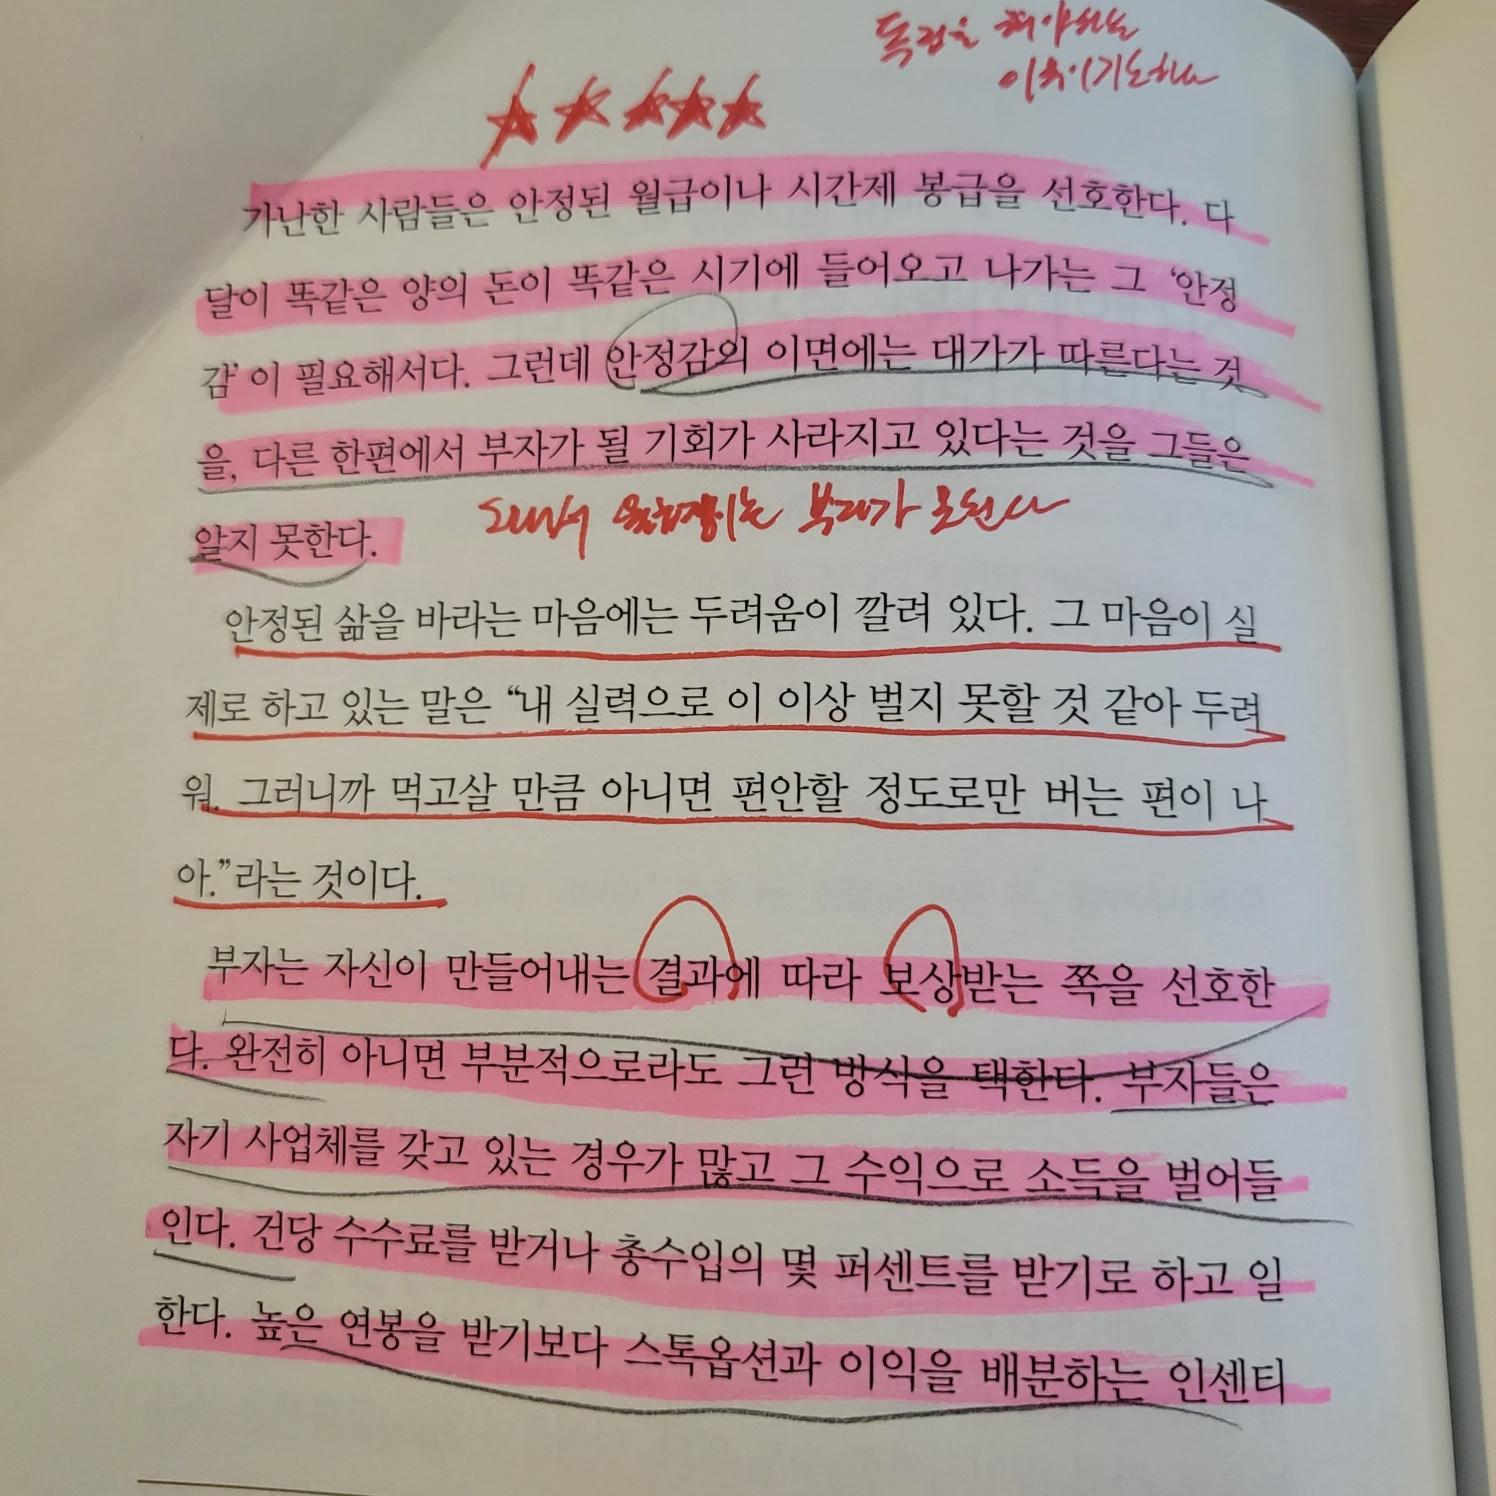 독립을 해야하는
이유이기도하다
가난한 사람들은 안정된 월급이나 시간제 봉급을 선호한다. 다
달이 똑같은 양의 돈이 똑같은 시기에 들어오고 나가는 그 ‘안정
감’이 필요해서다. 그런데 안정감의 이면에는 대가가 따른다는 것
을, 다른 한편에서 부자가 될 기회가 사라지고 있다는 것을 그들은
알지 못한다.
부자가 못된다
안정된 삶을 바라는 마음에는 두려움이 깔려 있다. 그 마음이 실
제로 하고 있는 말은 “내 실력으로 이 이상 벌지 못할 것 같아 두려
워. 그러니까 먹고살 만큼 아니면 편안할 정도로만 버는 편이 나
아.”라는 것이다.
부자는 자신이 만들어내는 결과에 따라 보상받는 쪽을 선호한
다. 완전히 아니면 부분적으로라도 그런 방식을 택한다. 부자들은
자기 사업체를 갖고 있는 경우가 많고 그 수익으로 소득을 벌어들
인다. 건당 수수료를 받거나 총수입의 몇 퍼센트를 받기로 하고 일
한다. 높은 연봉을 받기보다 스톡옵션과 이익을 배분하는 인센티